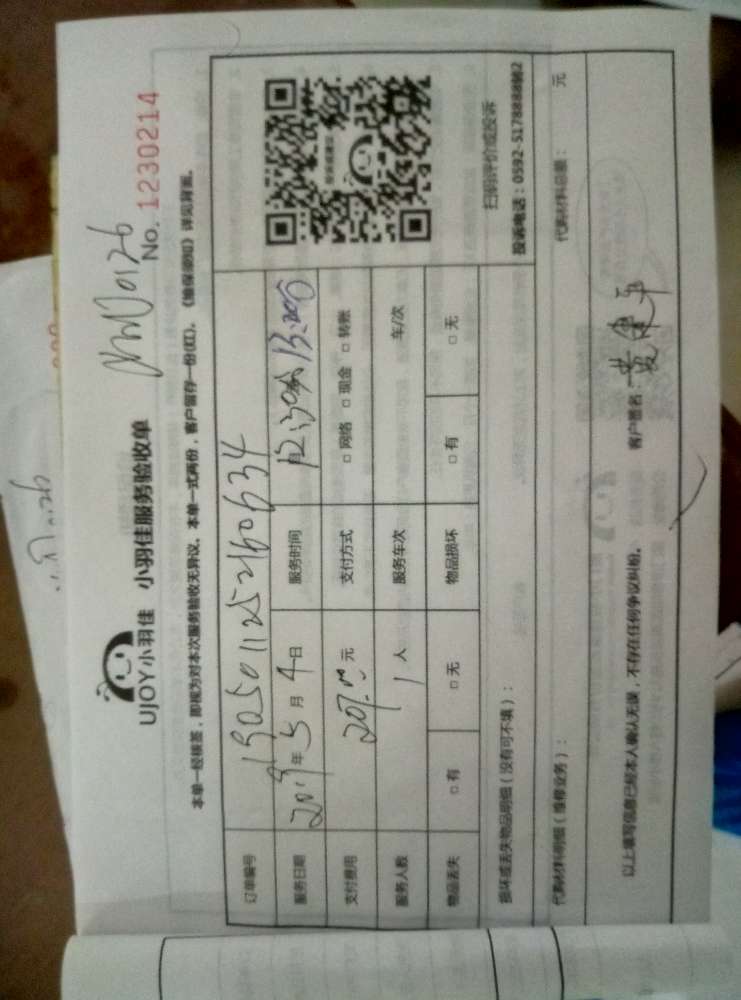 UJOY小羽佳 小羽佳服务验收单
No. 1230214
本单一经核签，即视为对本次服务验收无异议。本单一式两份，客户留存一份(红)。《维保须知》详见背面。
订单编号 1905011252160634
服务日期 2019年5月4日 服务时间
支付费用 元 支付方式 □ 网络 □ 现金 □ 转账
服务人数 1 人 服务车次 车/次
物品丢失 □ 有 □ 无 物品损坏 □ 有 □ 无
扫码评价或投诉
损坏或丢失物品明细（没有可不填）：
代购材料明细（维修业务）： 代购材料总额： 元
以上填写信息已经本人确认无误，不存在任何争议纠纷。 客户签名：黄建平